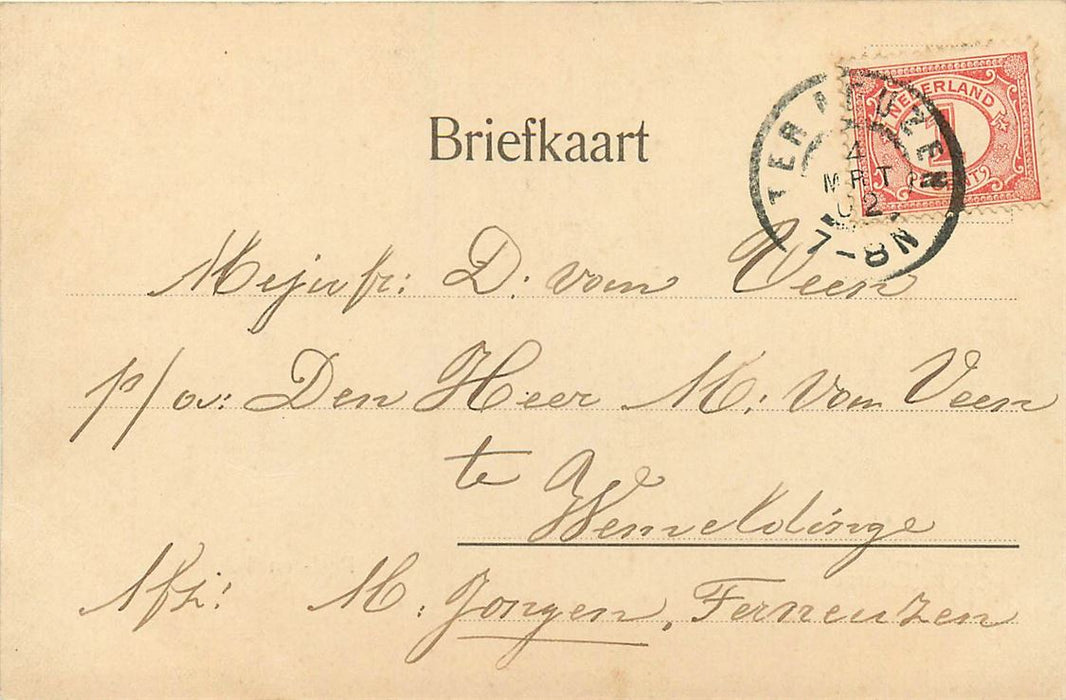 Briefkaart
NEDERLAND
1
CENT
TER NEUZEN
4
MRT
02
7-8N
Mejufr: D: van Veen
p/a: Den Heer M: van Veen
te
Wemeldinge
Afz: M. Jongen, Terneuzen